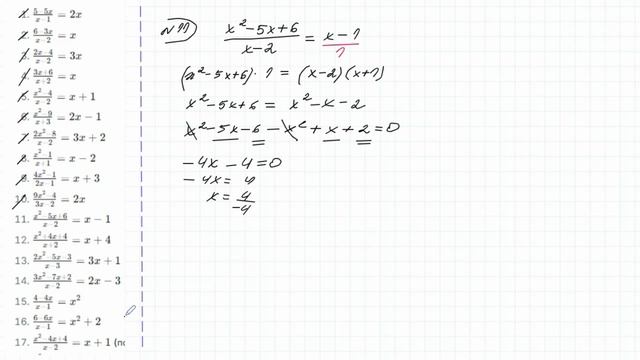 1. \frac{5-5x}{x-1} = 2x
2. \frac{6-3x}{x-2} = x
3. \frac{2x-4}{x-2} = 3x
4. \frac{3x+6}{x+2} = x
5. \frac{x^2-4}{x-2} = x + 1
6. \frac{x^2-9}{x+3} = 2x - 1
7. \frac{2x^2-8}{x-2} = 3x + 2
8. \frac{x^2-1}{x+1} = x - 2
9. \frac{4x^2-1}{2x-1} = x + 3
10. \frac{9x^2-4}{3x-2} = 2x
11. \frac{x^2-5x+6}{x-2} = x - 1
12. \frac{x^2+4x+4}{x+2} = x + 4
13. \frac{2x^2-5x-3}{x-3} = 3x + 1
14. \frac{3x^2-7x+2}{x-2} = 2x - 3
15. \frac{4-4x}{x-1} = x^2
16. \frac{6-6x}{x-1} = x^2 + 2
17. \frac{x^2-4x+4}{x-2} = x + 1 (по
№11 \frac{x^2-5x+6}{x-2} = \frac{x-1}{1}
(x^2-5x+6) · 1 = (x-2)(x+1)
x^2-5x+6 = x^2-x-2
x^2-5x-6-x^2+x+2=0
-4x-4=0
-4x=4
x=\frac{4}{-4}